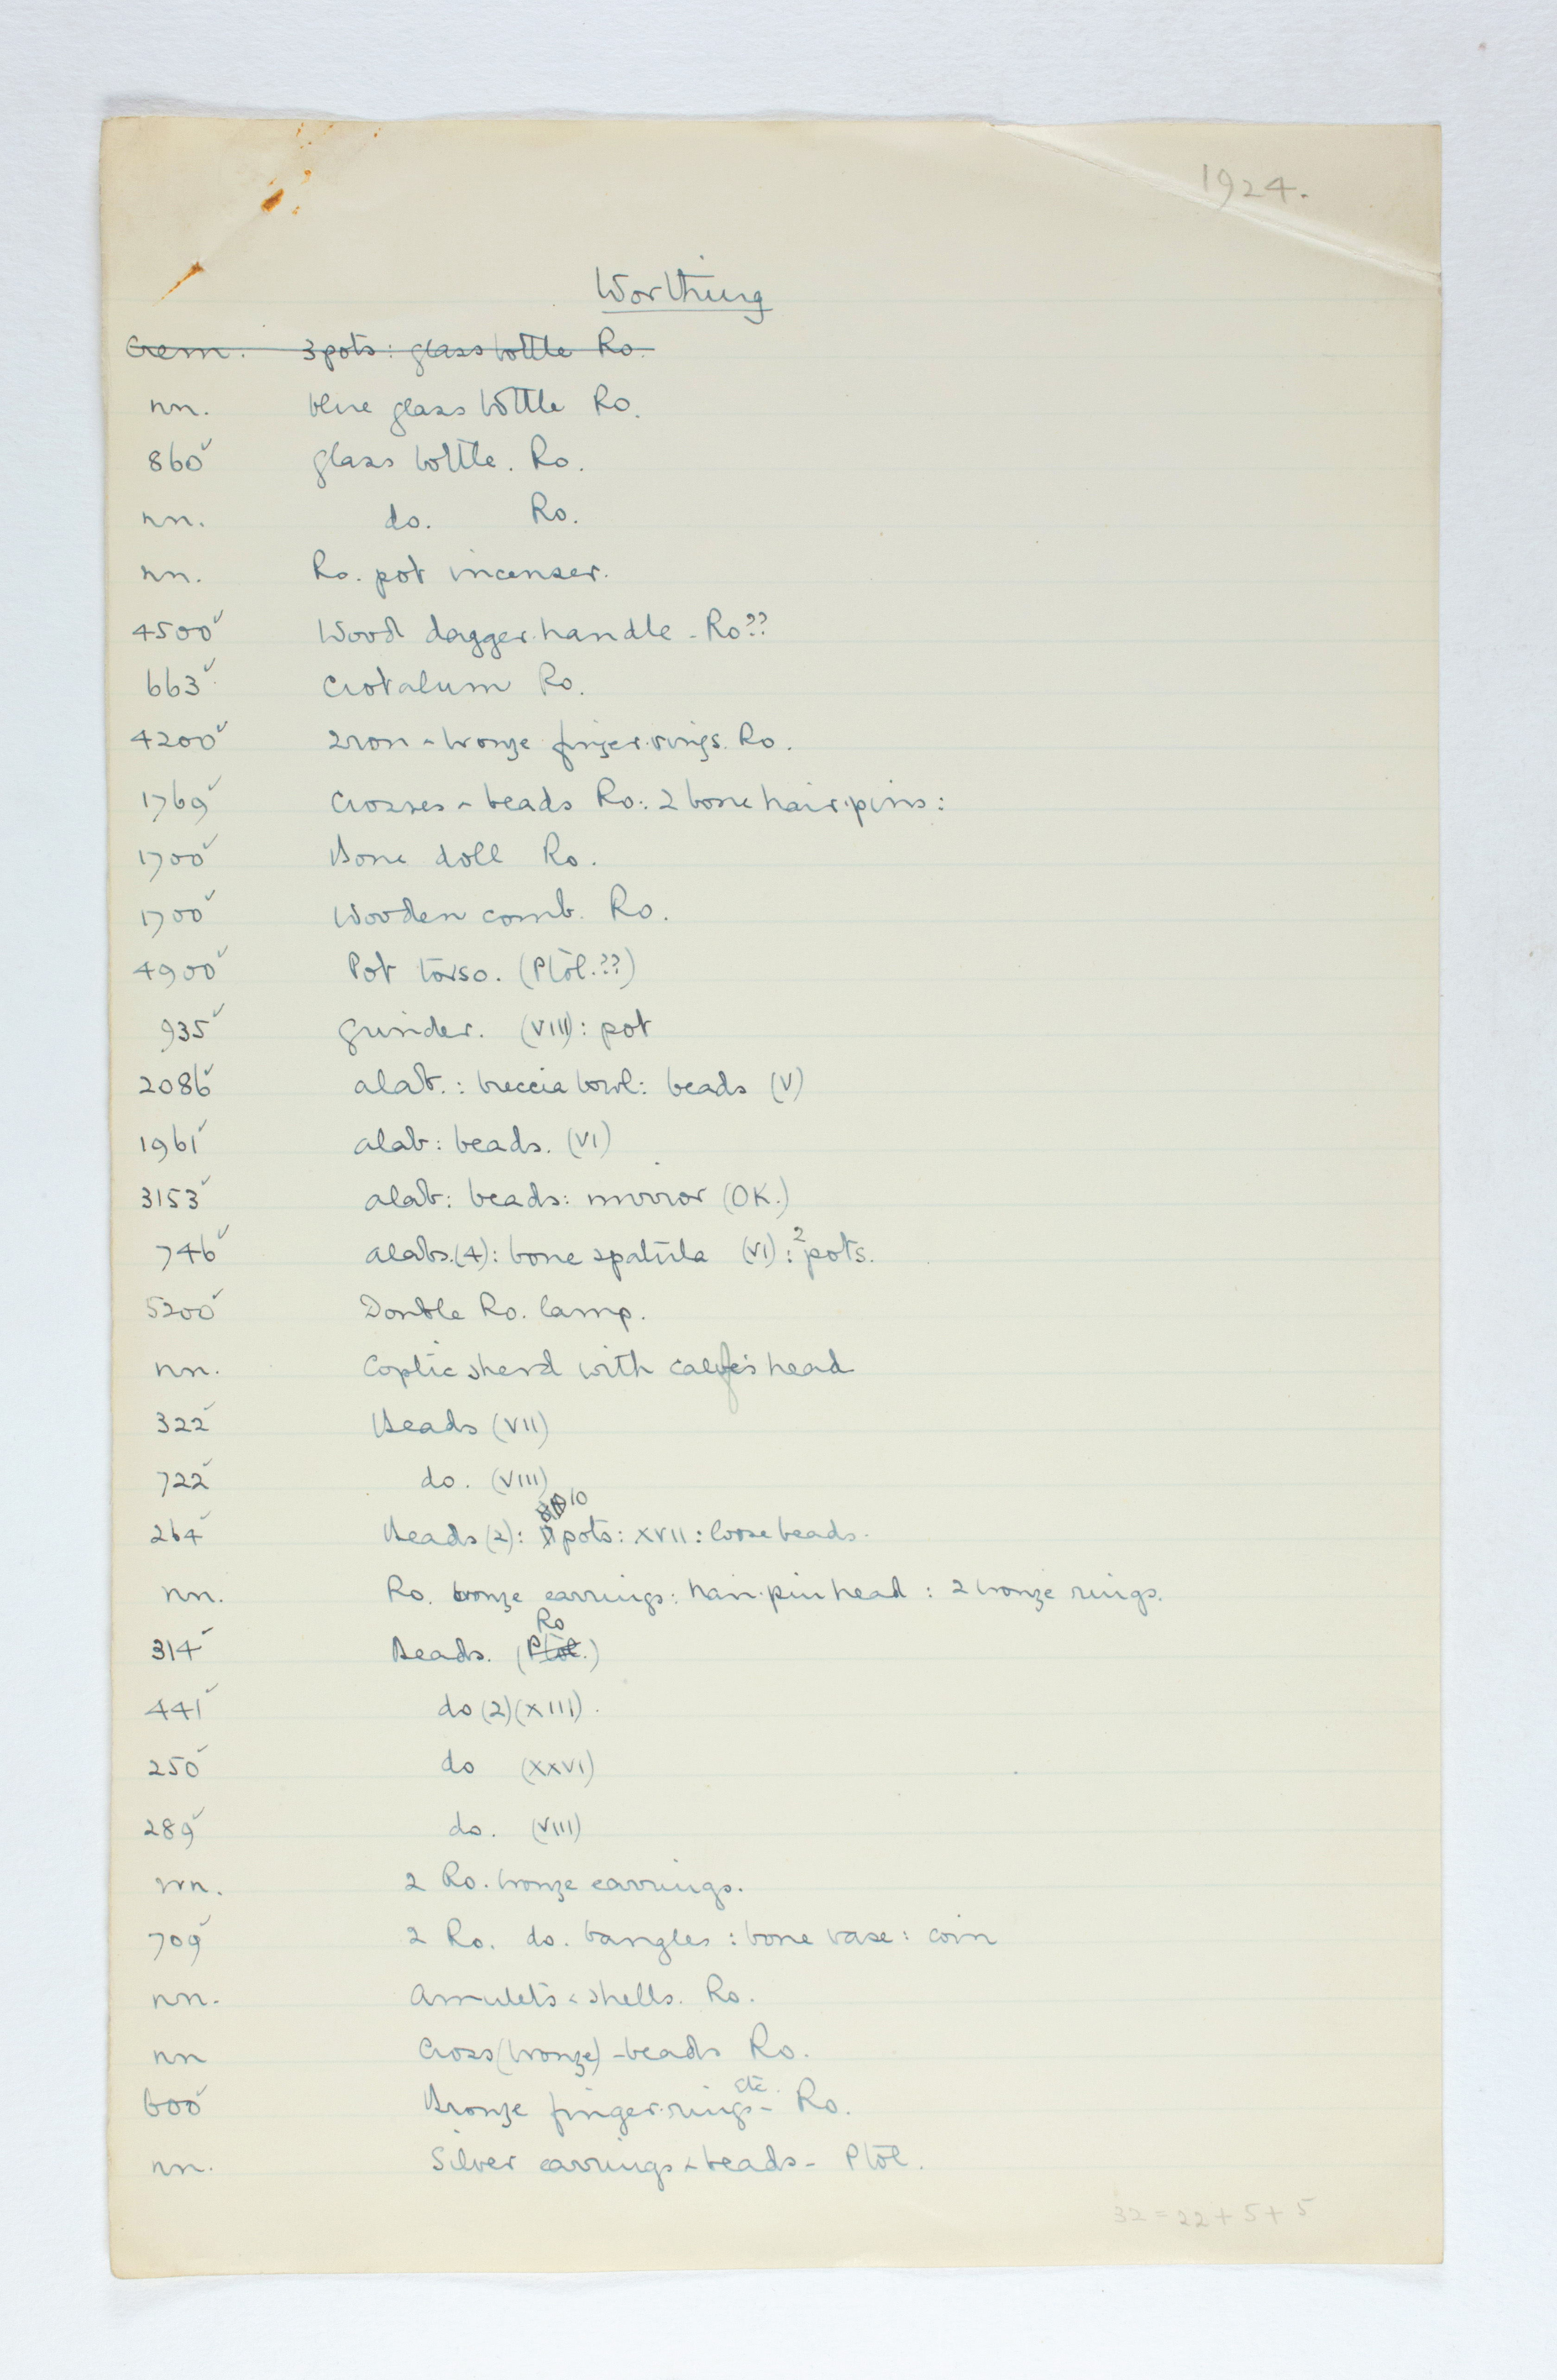 1924.
Worthing
Gem. 3 pots: glass bottle Ro.
nn. blue glass bottle Ro.
860✓ glass bottle. Ro.
nn. do. Ro.
nn. Ro. pot incenser.
4500✓ Wood dagger-handle - Ro??
663✓ Crotalum Ro.
4200✓ Iron & bronze finger-rings. Ro.
1769✓ Crosses & beads Ro: 2 bone hair-pins:
1700✓ Bone doll Ro.
1700✓ Wooden comb. Ro.
4900✓ Pot torso. (Ptol.??)
935✓ Grinder. (VIII): pot
2086✓ alab.: breccia bowl: beads (V)
1961✓ alab: beads. (VI)
3153✓ alab: beads: mirror (OK.)
746✓ alabs.(4): bone spatula (VI): 2 pots.
5200✓ Double Ro. lamp.
nn. Coptic sherd with calf's head
322✓ Beads (VII)
722✓ do. (VIII)
264✓ Beads (2): 10 pots: XVII: loose beads.
nn. Ro. bronze earrings: hair-pin head: 2 bronze rings.
314✓ Beads. (Ptol. Ro)
441✓ do (2) (XIII).
250✓ do (XXVI)
289✓ do. (VIII)
nn. 2 Ro. bronze earrings.
709✓ 2 Ro. do. bangles: bone vase: coin
nn. Amulets & shells. Ro.
nn Cross (bronze) - beads Ro.
600✓ Bronze finger-rings etc. - Ro.
nn. Silver earrings & beads - Ptol.
32 = 22 + 5 + 5